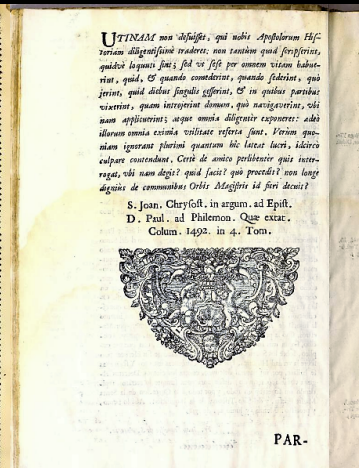 UTINAM non defuisset, qui nobis Apostolorum His-
toriam diligentissimè traderet: non tantum quid scripserint,
quidvè loquuti sint; sed vt sese per omnem vitam habue-
rint, quid, & quando comederint, quando sederint, quò
ierint, quid diebus singulis gesserint, & in quibus partibus
vixerint, quam introierint domum, quò navigaverint, vbi
nam applicuerint; atque omnia diligenter exponeret: adeò
illorum omnia eximia vtilitate referta sunt. Verùm quo-
niam ignorant plurimi quantum hic lateat lucri, idcircò
culpare contendunt. Certè de amico perlibenter quis inter-
rogat, vbi nam degit? quid facit? quò procedit? non longè
dignius de communibus Orbis Magistris id fieri decuit?
S. Joan. Chrysost. in argum. ad Epist.
D. Paul. ad Philemon. Quæ extat.
Colum. 1492. in 4. Tom.
PAR-